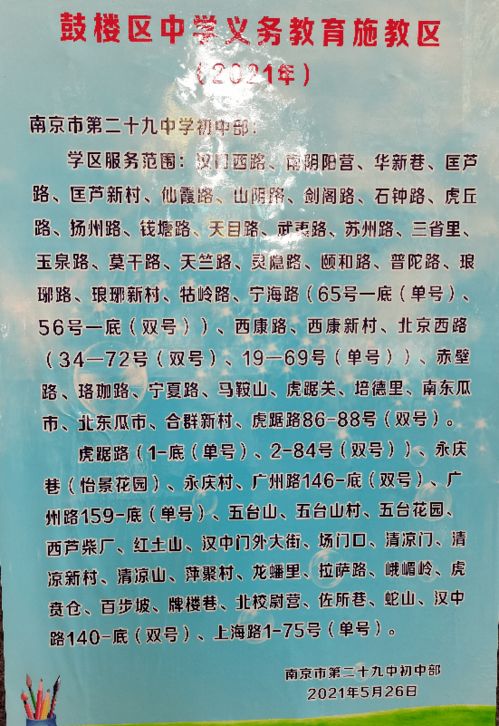 鼓楼区中学义务教育施教区
（2021年）
南京市第二十九中学初中部：
学区服务范围：汉门西路、南阴阳营、华新巷、匡芦
路、匡芦新村、仙霞路、山阴路、剑阁路、石钟路、虎丘
路、扬州路、钱塘路、天目路、武夷路、苏州路、三省里、
玉泉路、莫干路、天竺路、灵隐路、颐和路、普陀路、琅
琊路、琅琊新村、牯岭路、宁海路（65号一底（单号）、
56号一底（双号））、西康路、西康新村、北京西路
（34—72号（双号）、19—69号（单号））、赤壁
路、珞珈路、宁夏路、马鞍山、虎踞关、培德里、南东瓜
市、北东瓜市、合群新村、虎踞路86-88号（双号）。
虎踞路（1-底（单号）、2-84号（双号））、永庆
巷（怡景花园）、永庆村、广州路146-底（双号）、广
州路159-底（单号）、五台山、五台山村、五台花园、
西芦柴厂、红土山、汉中门外大街、场门口、清凉门、清
凉新村、清凉山、萍聚村、龙蟠里、拉萨路、峨嵋岭、虎
贲仓、百步坡、牌楼巷、北校尉营、佐所巷、蛇山、汉中
路140-底（双号）、上海路1-75号（单号）。
南京市第二十九中初中部
2021年5月26日